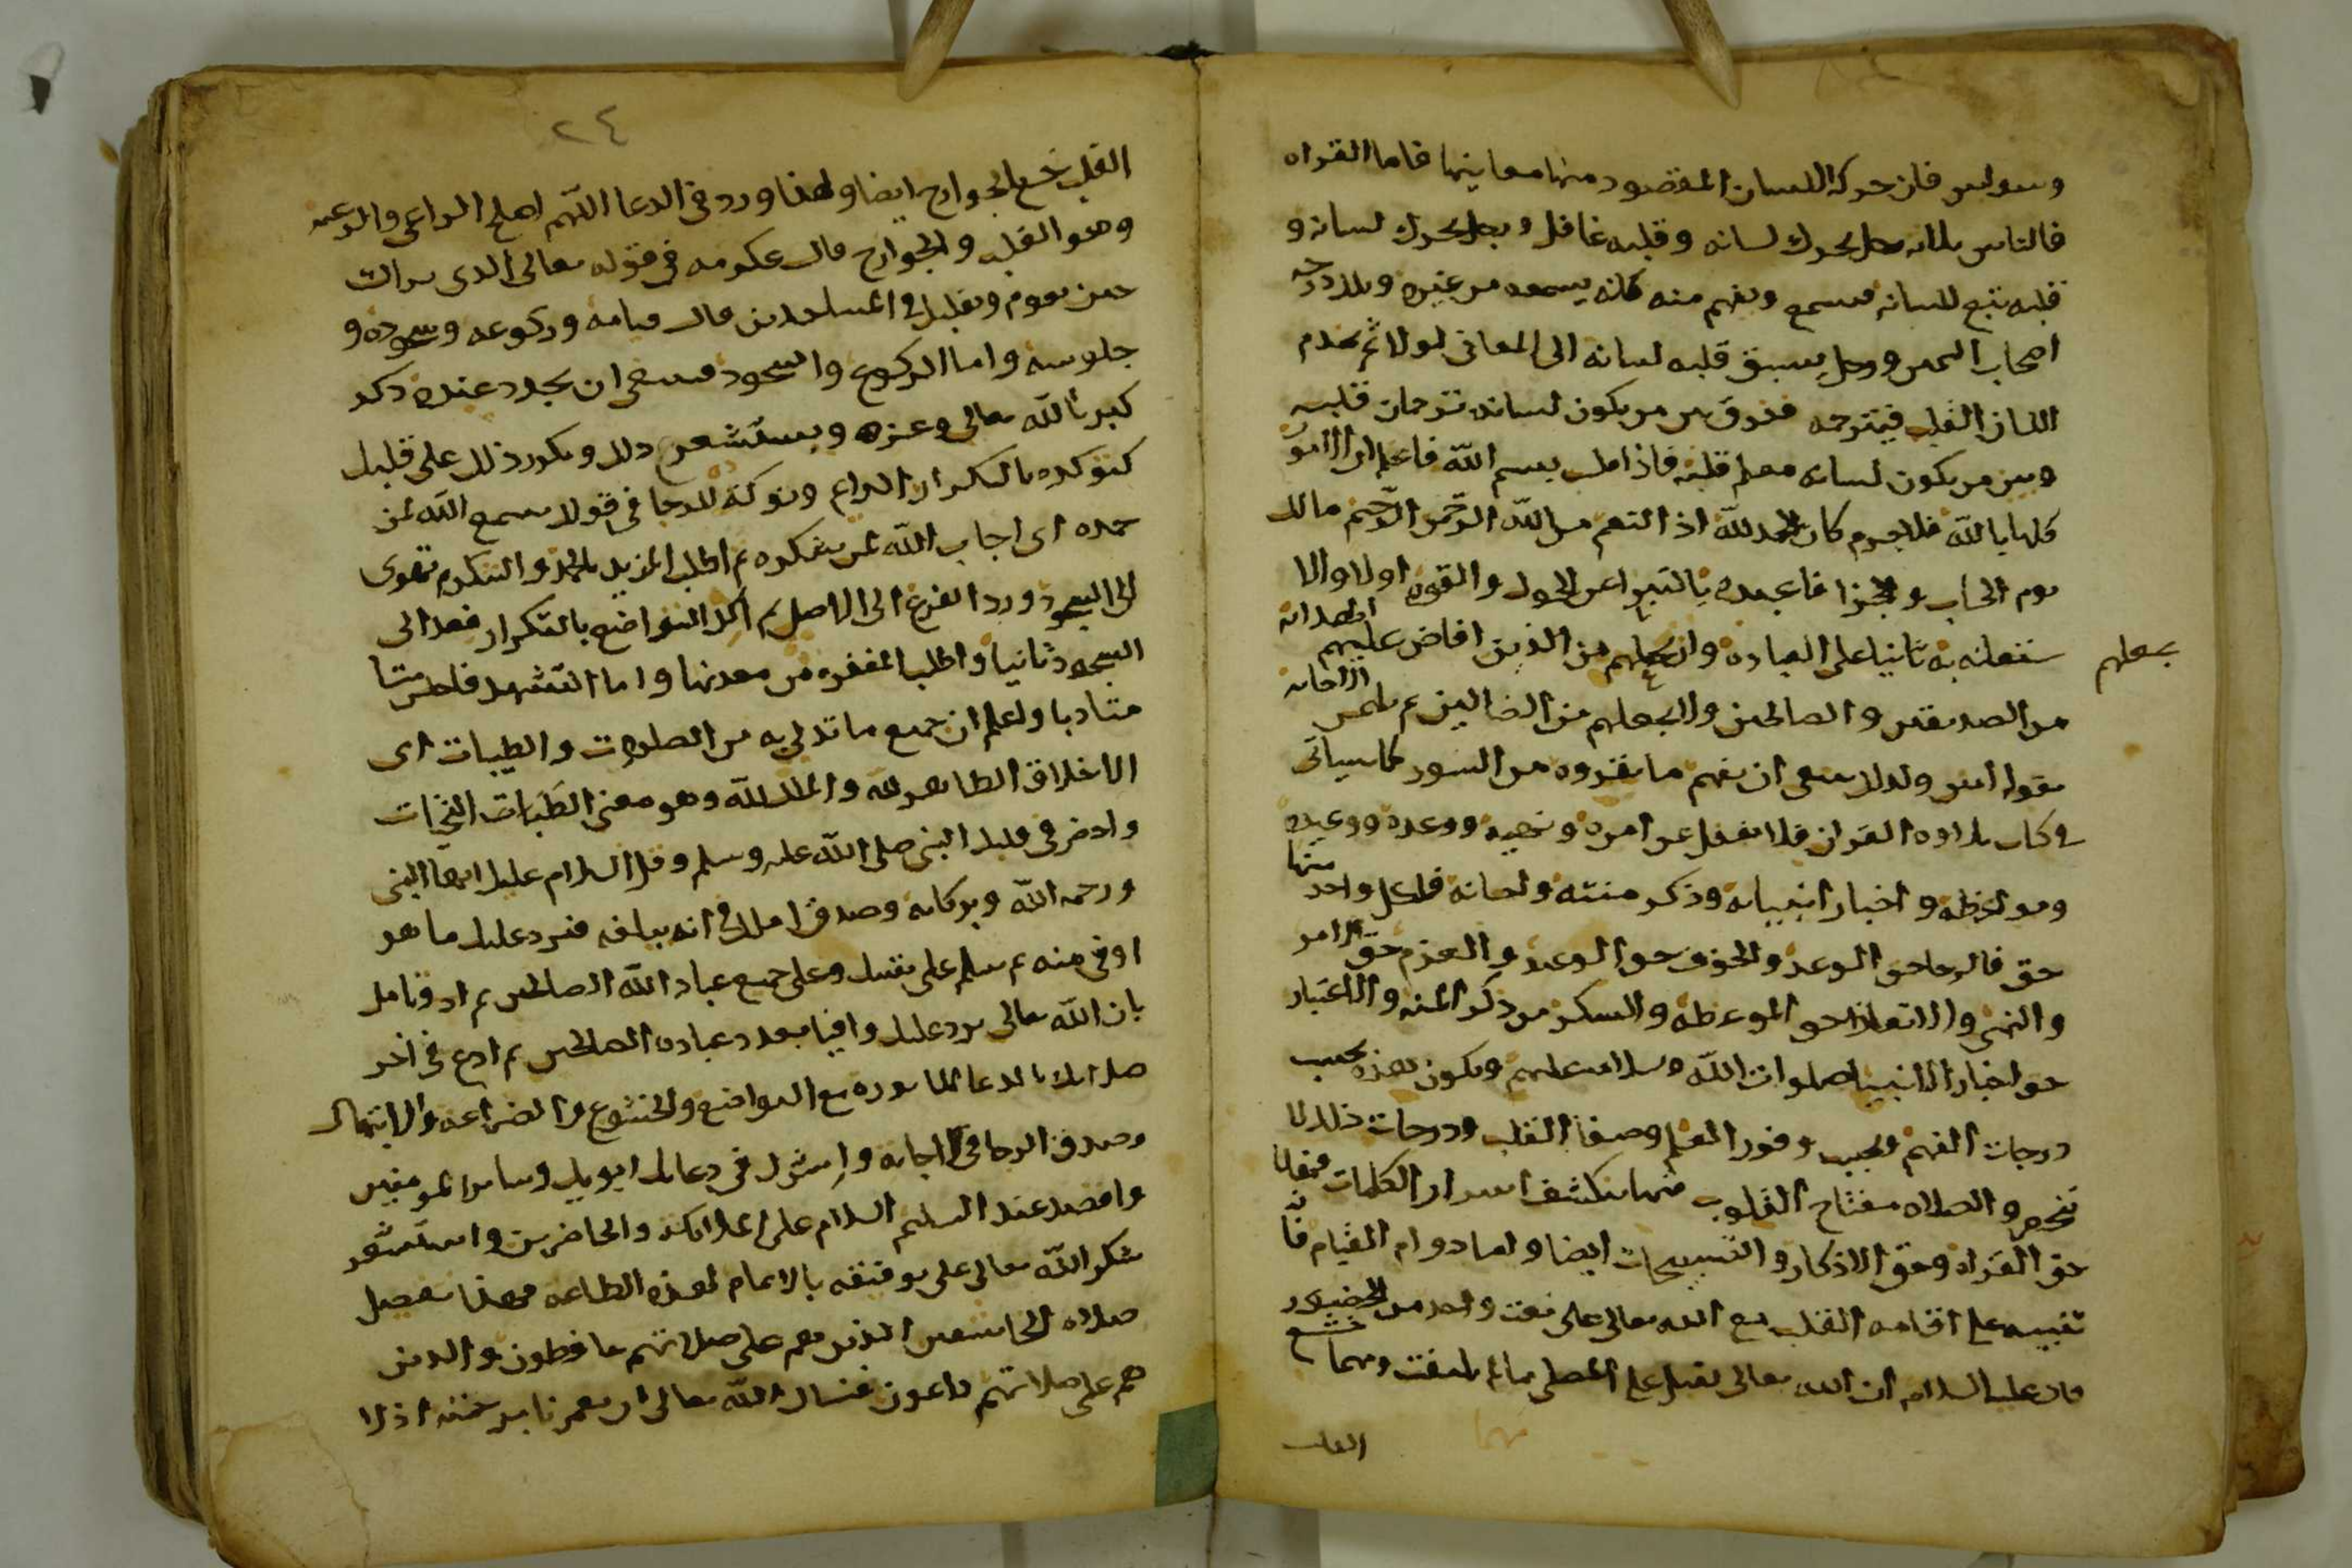 وسواس فان حركه اللسان المقصود منها معاينها فاما القراه
فالناس ثلاثه رجل يحرك لسانه وقلبه غافل ورجل يحرك لسانه و
قلبه يتبع للسانه فيسمع ويفهم منه كانه يسمعه من غيره وتلك درجه
اصحاب اليمين ورجل يسبق قلبه لسانه الى المعانى اولا ثم يخدم
اللسان القلب فيترجمه ففرق بين من يكون لسانه ترجمان قلبه
وبين من يكون لسانه معلم قلبه فاذا قلت بسم الله فاعلم ان الامور
كلها بالله فلا جرم كان الحمد لله اذ النعم من الله الرحمن الرحيم مالك
يوم الحساب والجزا فاعبده بالتبرا عن الحول والقوه اولا والا
ستعانه به ثانيا على العباده وان يجعلهم من الذين افاض عليهم الهدايه
يجعلهم
من الصديقين والصالحين ولا يجعلهم من الضالين ثم يلتمس الاجابه
بقوله امين ولذلك ينبغى ان يفهم ما يقروه من السور كما سياتى
فى كتاب تلاوه القران فلا يغفل عن امره ونهيه ووعده ووعيده
ومواعظه واخبار انبيائه وذكر مننه واحسانه فلكل واحد منها
حق فالرجا حق الوعد والخوف حق الوعيد والعزم حق الامر
والنهى والاتعاظ حق الموعظه والشكر من ذكر المنه والاعتبار
حق اخبار الانبيا صلوات الله وسلامه عليهم ويكون هذه بحسب
درجات الفهم وبحسب وفور العلم وصفا القلب ودرجات ذلك لا
تنحصر والصلاه مفتاح القلوب فيها ينكشف اسرار الكلمات فهذا
حق القراه وحق الاذكار والتسبيحات ايضا واما دوام القيام فا
تنبيه على اقامه القلب مع الله تعالى على نعت واحد من الحضور
قال عليه السلام ان الله تعالى يقبل على المصلى ما لم يلتفت ومهما خشع
القلب
٢٤
القلب خشع الجوارح ايضا ولهذا ورد فى الدعا اللهم اصلح الراعى والرعيه
وهو القلب والجوارح قال عكرمه فى قوله تعالى الذى يراك
حين تقوم وتقلبك فى الساجدين قال قيامه وركوعه وسجوده و
جلوسه واما الركوع والسجود فينبغى ان يجدد عنده ذكر
كبريا الله تعالى وعزه ويستشعر ذلك ويكرر ذلك على قلبك
لتوكده بالتكرار الراع وتوكد الرجا فى قولك سمع الله لمن
حمده اى اجاب الله لمن يشكره ثم اطلب المزيد بالحمد والشكر ثم تهوى
الى السجود ورد الفرع الى الاصل ثم اكد التواضع بالتكرار فعد الى
السجود ثانيا واطلب المغفره من معدنها واما التشهد فاجلس
متادبا واعلم ان جميع ما تدلى به من الصلوات والطيبات اى
الاخلاق الطاهره لله والملك لله وهو معنى الطيبات التحيات
واحضر فى قلبك النبى صلى الله عليه وسلم وقل السلام عليك ايها النبى
ورحمه الله وبركاته وصدق املك فى انه يبلغه فيرد عليك ما هو
اوفى منه ثم سلم على نفسك وعلى جميع عباد الله الصالحين ثم
بان الله تعالى يرد عليك وافيا بعدد عباده الصالحين ثم ادع فى اخر
صلاتك بالدعا الماثوره مع التواضع والخشوع والضراعه والابتهال
وصدق الرجا فى الاجابه واشرك فى دعاك ابويك وساير المومنين
واقصد عند التسليم السلام على الملائكه والحاضرين واستشعر
شكر الله تعالى على توفيقه بالاتمام لهذه الطاعه فهذا تفصيل
صلاه الخاشعين الذين هم على صلاتهم يحافظون والذين
هم على صلاتهم داعون فنسال الله تعالى ان يغمرنا برحمته اذ لا